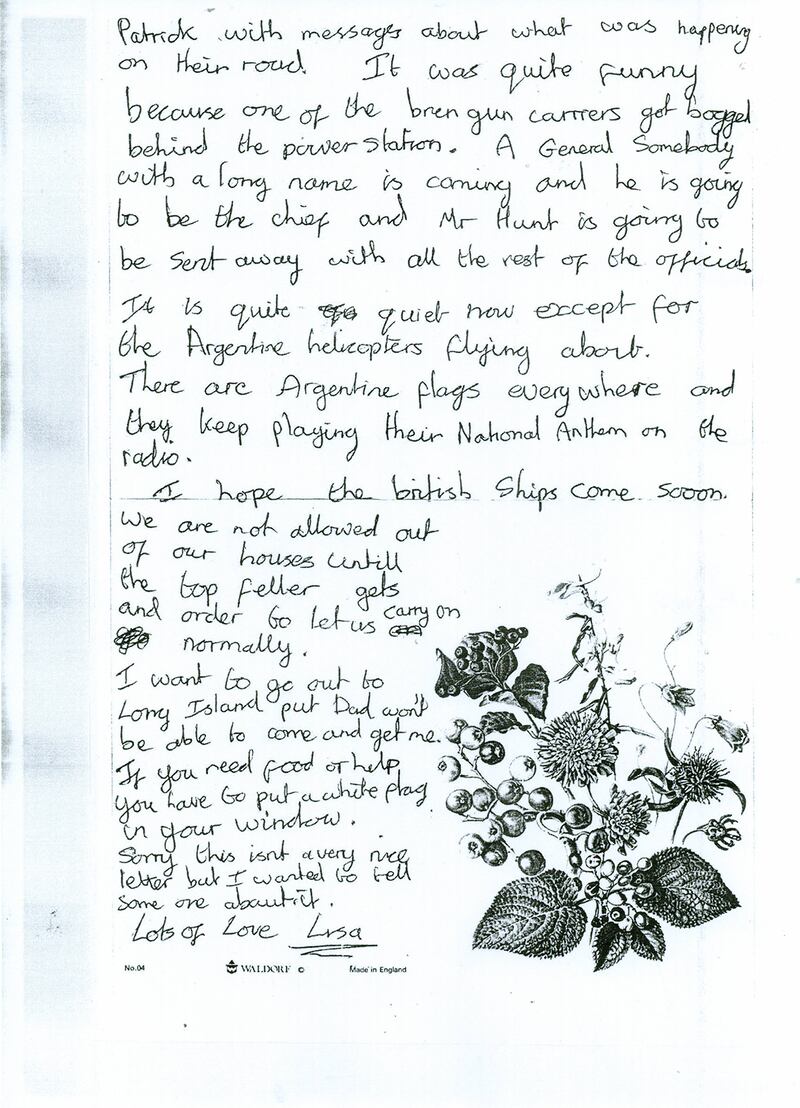 Patrick with messages about what was happening
on their road. It was quite funny
because one of the bren gun carrrers got bogged
behind the power station. A General Somebody
with a long name is coming and he is going
to be the chief and Mr Hunt is going to
be sent away with all the rest of the officials.
It is quite quiet now except for
the Argentine helicopters flying about.
There are Argentine flags everywhere and
they keep playing their National Anthem on the
radio.
I hope the british Ships come sooon.
We are not allowed out
of our houses untill
the top feller gets
and order to let us carry on
normally.
I want to go out to
Long Island put Dad won't
be able to come and get me.
If you need food or help
you have to put a white flag
in your window.
Sorry this isnt a very nice
letter but I wanted to tell
some one about it.
Lots of Love Lisa
No.04 WALDORF © Made in England